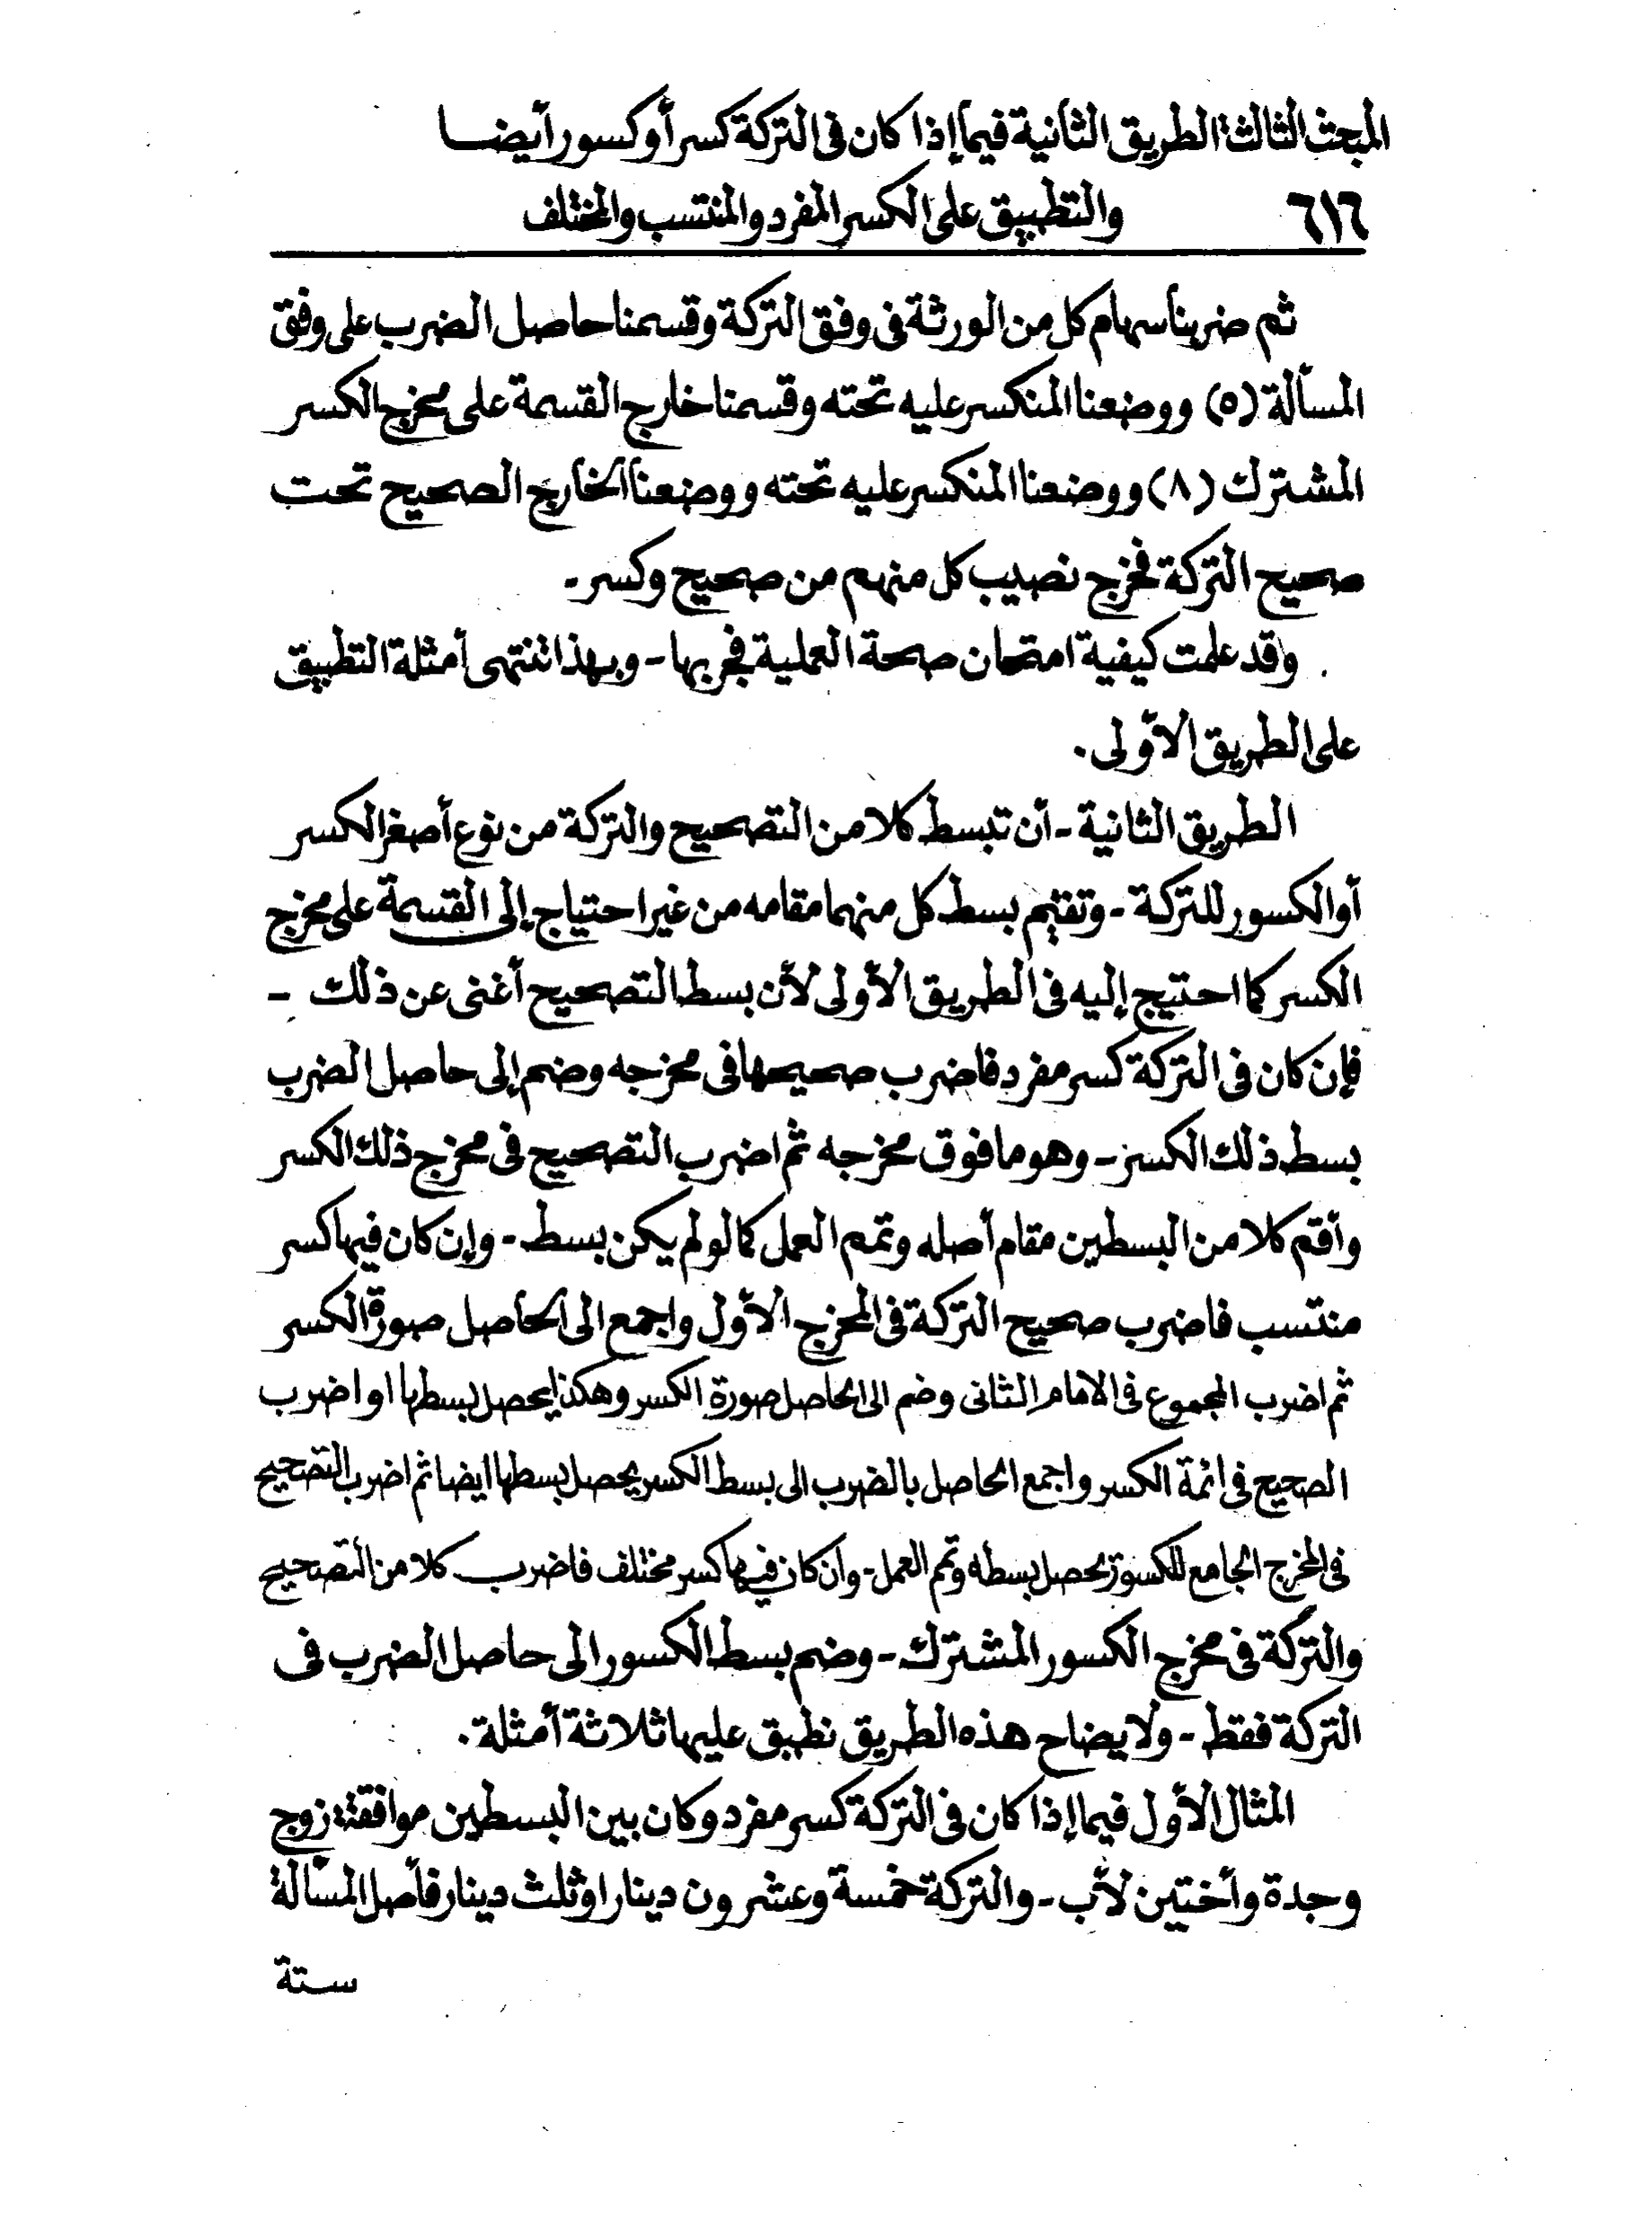 المبحث الثالث: الطريق الثانية فيما إذا كان فى التركة كسر أو كسور أيضا
٦١٦ والتطبيق على الكسر المفرد والمنتسب والمختلف
ثم ضربنا سهام كل من الورثة فى وفق التركة وقسمنا حاصل الضرب على وفق
المسألة (٥) ووضعنا المنكسر عليه تحته وقسمنا خارج القسمة على مخرج الكسر
المشترك (٨) ووضعنا المنكسر عليه تحته ووضعنا الخارج الصحيح تحت
صحيح التركة فخرج نصيب كل منهم من صحيح وكسر -
وقد علمت كيفية امتحان صحة العملية فجربها - وبهذا تنتهى أمثلة التطبيق
على الطريق الأولى .
الطريق الثانية - أن تبسط كلا من التصحيح والتركة من نوع أصغر الكسر
أو الكسور للتركة - وتقيم بسط كل منهما مقامه من غير احتياج إلى القسمة على مخرج
الكسر كما احتيج إليه فى الطريق الأولى لأن بسط التصحيح أغنى عن ذلك -
فإن كان فى التركة كسر مفرد فاضرب صحيحها فى مخرجه وضم إلى حاصل الضرب
بسط ذلك الكسر - وهو ما فوق مخرجه ثم اضرب التصحيح فى مخرج ذلك الكسر
وأقم كلا من البسطين مقام أصله وتمم العمل كما لو لم يكن بسط - وإن كان فيها كسر
منتسب فاضرب صحيح التركة فى المخرج الأول واجمع الى الحاصل صورة الكسر
ثم اضرب المجموع فى الامام الثانى وضم الى الحاصل صورة الكسر وهكذا يحصل بسطها او اضرب
الصحيح فى ائمة الكسر واجمع الحاصل بالضرب الى بسط الكسر يحصل بسطها ايضا ثم اضرب التصحيح
فى المخرج الجامع للكسور يحصل بسطه وتمم العمل - وان كان فيها كسر مختلف فاضرب كلا من التصحيح
والتركة فى مخرج الكسور المشترك - وضم بسط الكسور الى حاصل الضرب فى
التركة فقط - ولايضاح هذه الطريق نطبق عليها ثلاثة أمثلة .
المثال الأول فيما إذا كان فى التركة كسر مفرد وكان بين البسطين موافقة : زوج
وجدة وأختين لأب - والتركة خمسة وعشرون دينارا وثلث دينار فأصل المسألة
ستة